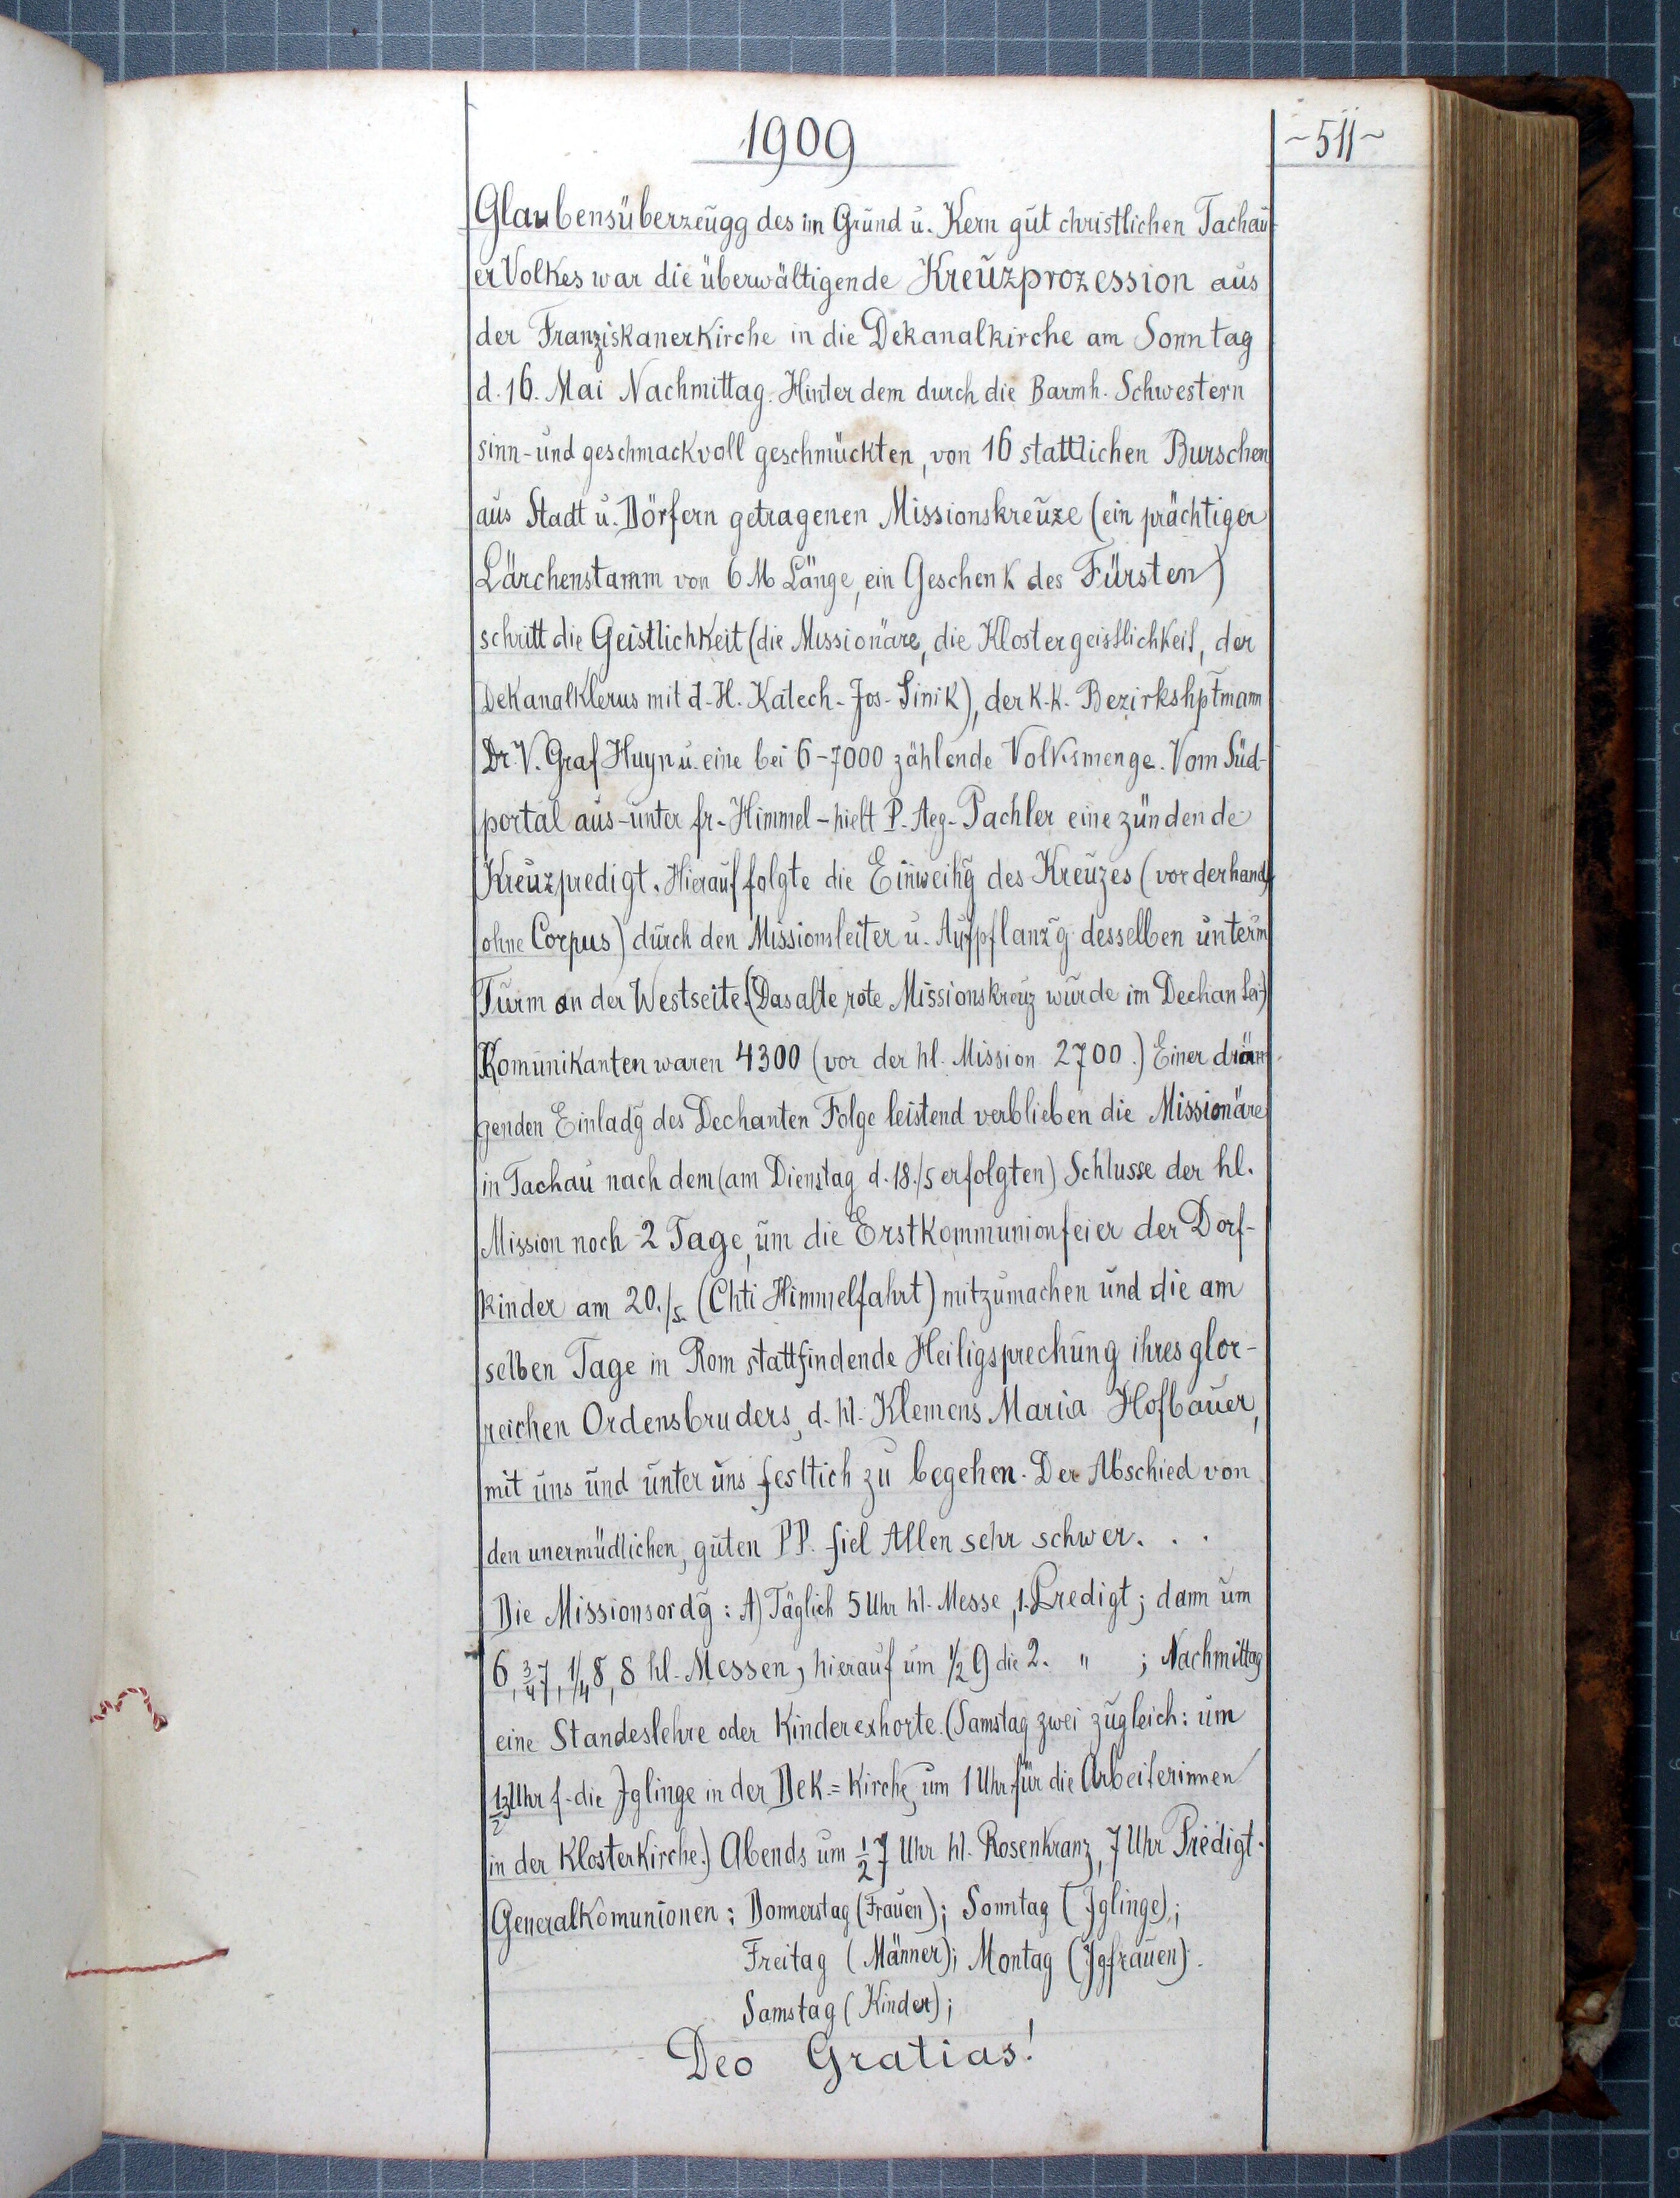 1909
~511~
Glaubensüberzeugg des im Grund u. Kern gut christlichen Tachau-
er Volkes war die überwältigende Kreuzprozession aus
der Franziskanerkirche in die Dekanalkirche am Sonntag
d. 16. Mai Nachmittag. Hinter dem durch die Barmh. Schwestern
sinn- und geschmackvoll geschmückten, von 16 stattlichen Burschen
aus Stadt u. Dörfern getragenen Missionskreuze (ein prächtiger
Lärchenstamm von 6 M Länge, ein Geschenk des Fürsten)
schritt die Geistlichkeit (die Missionäre, die Klostergeistlichkeit, der
Dekanalklerus mit d. H. Katech. Jos. Sinik), der k.k. Bezirkshptmann
Dr. V. Graf Huyn u. eine bei 6-7000 zählende Volksmenge. Vom Süd-
portal aus - unter fr. Himmel - hielt P. Aeg. Pachler eine zündende
Kreuzpredigt. Hierauf folgte die Einweihg̃ des Kreuzes (vorderhand
ohne Corpus) durch den Missionsleiter u. Aufpflanzg̃ desselben unterm
Turm an der Westseite. (Das alte, rote Missionskreuz wurde im Dechantei)
Komunikanten waren 4300 (vor der hl. Mission 2700.) Einer drän-
genden Einladg̃ des Dechanten Folge leistend verblieben die Missionäre
in Tachau nach dem (am Dienstag d. 18./5 erfolgten) Schlusse der hl.
Mission noch 2 Tage, um die Erstkommunionfeier der Dorf-
kinder am 20./5. (Chti Himmelfahrt) mitzumachen und die am
selben Tage in Rom stattfindende Heiligsprechung ihres glor-
reichen Ordensbruders, d. hl. Klemens Maria Hofbauer,
mit uns und unter uns festlich zu begehen. Der Abschied von
den unermüdlichen, guten PP. fiel Allen sehr schwer. . .
Die Missionsordg̃: A) Täglich 5 Uhr hl. Messe, 1. Predigt; dann um
6, 3/4 7, 1/4 8, 8 hl. Messen, hierauf um 1/2 9 die 2. " ; Nachmittag
eine Standeslehre oder Kinderexhorte. (Samstag zwei zugleich: um
1/2 3 Uhr f. die Jglinge in der Dek.=Kirche, um 1 Uhr für die Arbeiterinnen
in der Klosterkirche.) Abends um 1/2 7 Uhr hl. Rosenkranz, 7 Uhr Predigt.
Generalkomunionen: Donnerstag (Frauen); Sonntag (Jglinge);
Freitag (Männer); Montag (Jgfrauen).
Samstag (Kinder);
Deo Gratias!